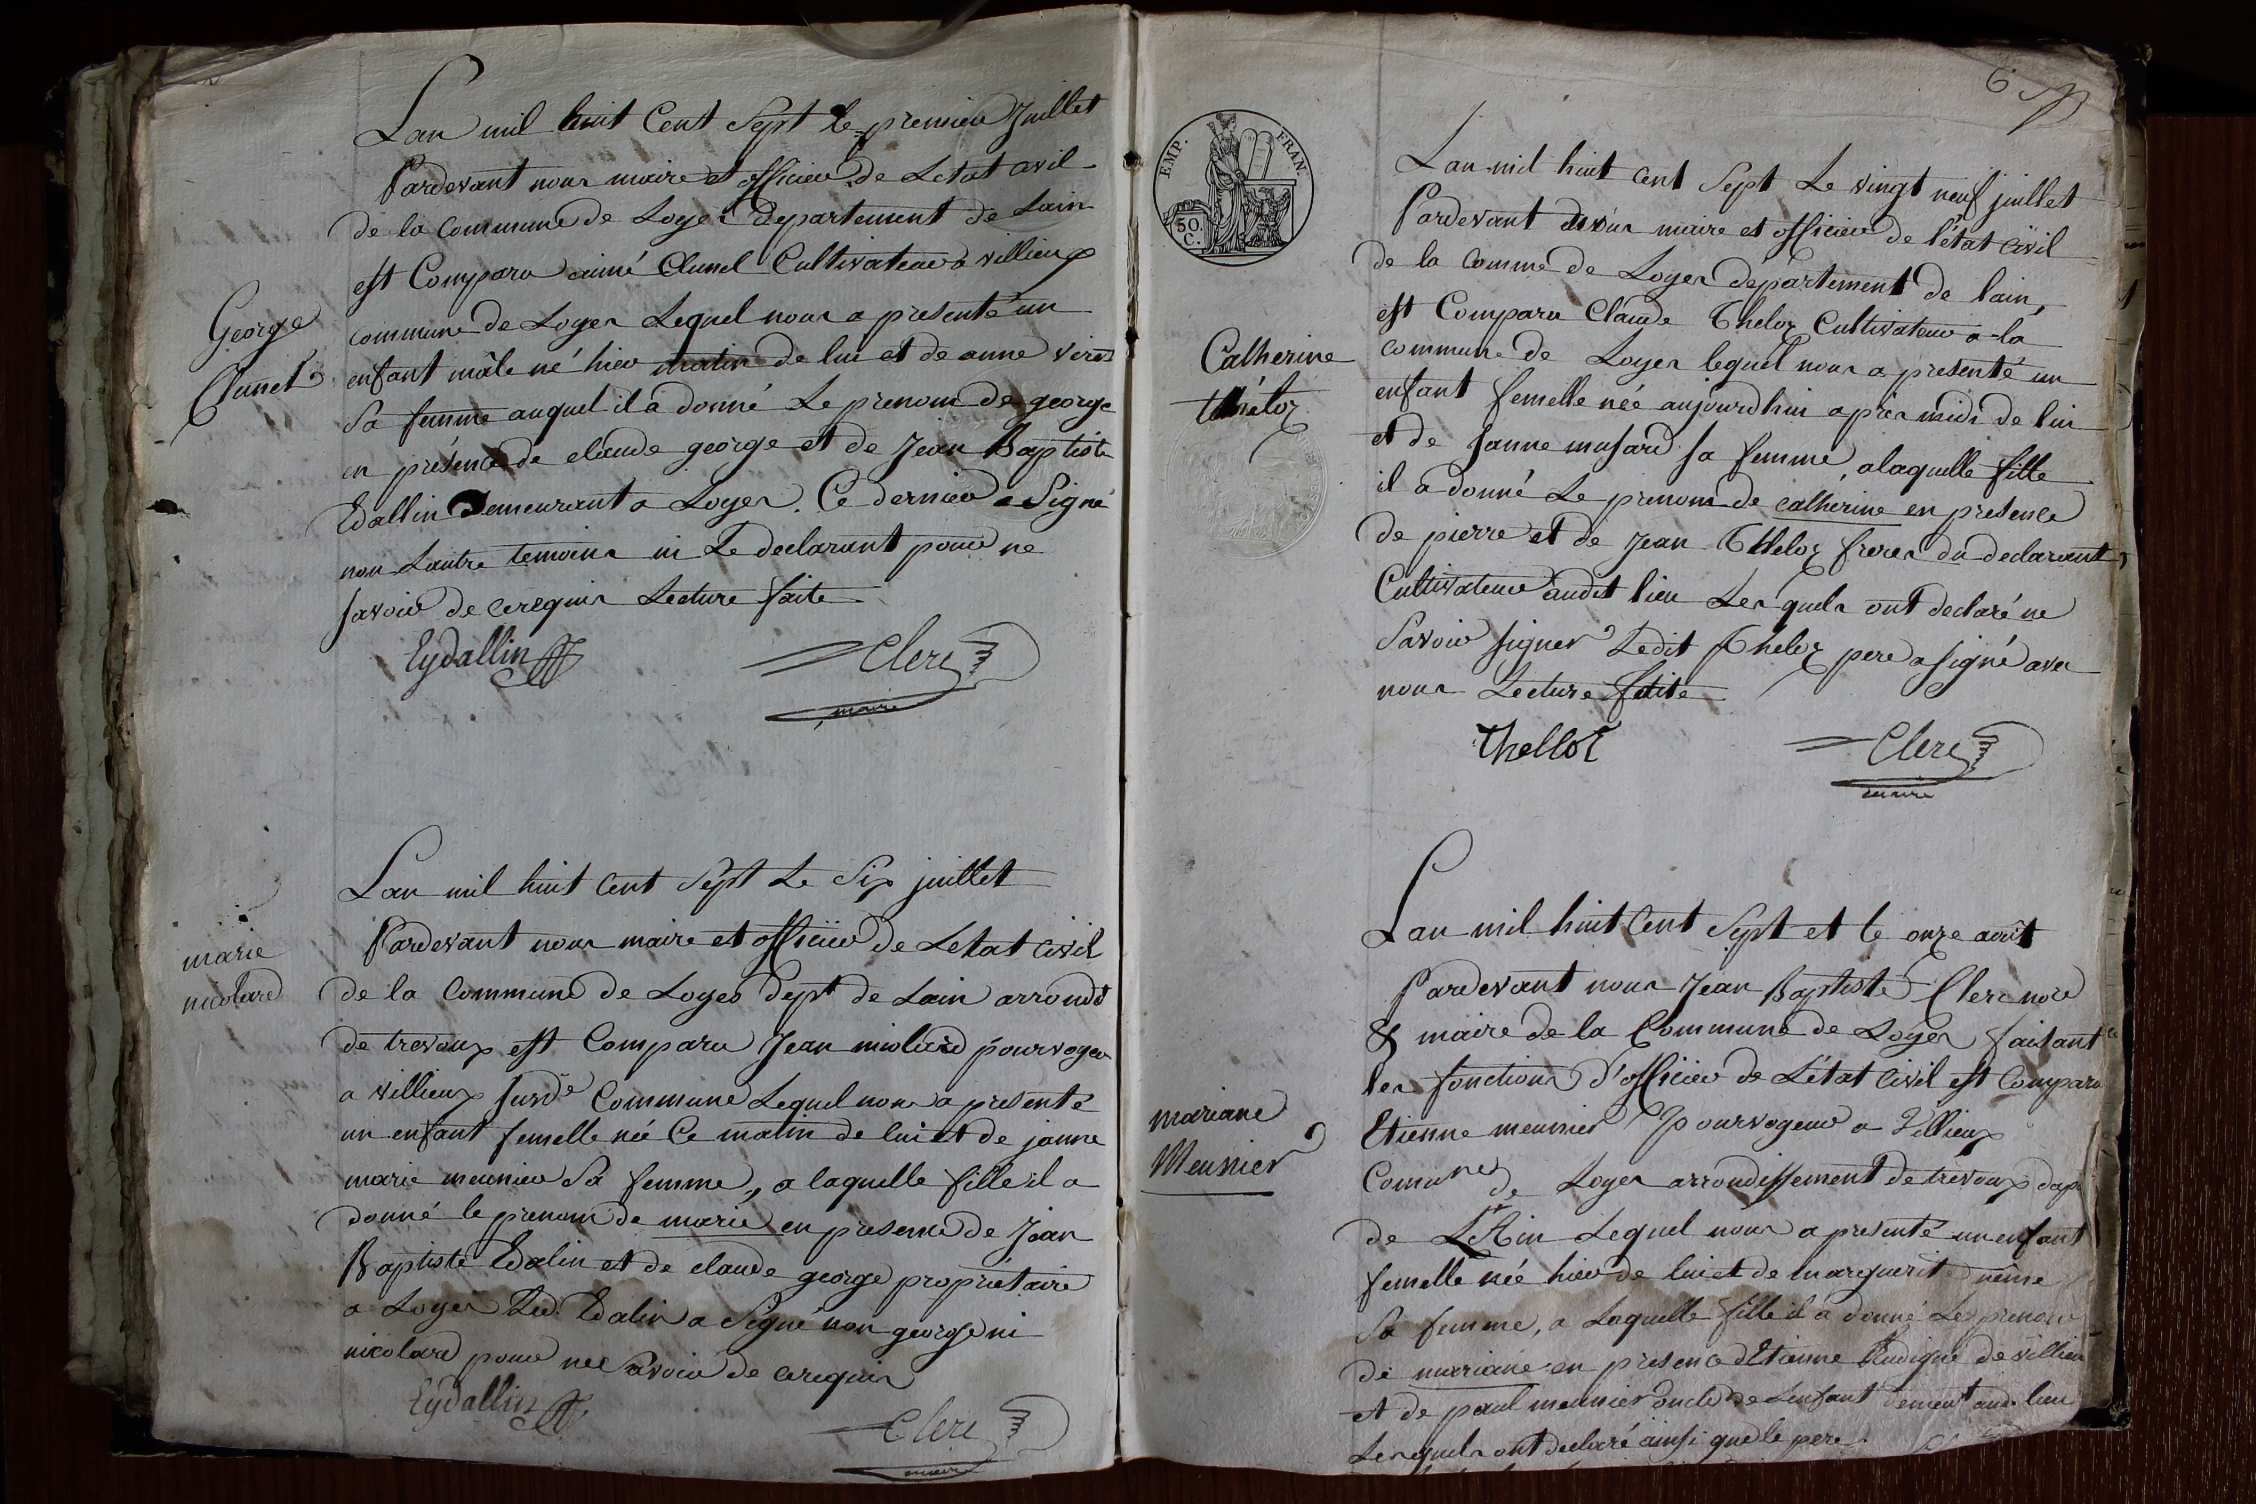 Lan mil huit Cent Sept le premier Juillet
Pardevant nous maire et officier de Letat civil
de la Commune de Loyes departement de Lain
est Comparu aimé Clunel Cultivateur a villieux
commune de Loyes Lequel nous a presenté un
George
Clunel
enfant mâle né hier matin de lui et de anne
Sa femme auquel il a donné Le prenom de george
en présence de claude george et de Jean Baptiste
Edallin Demeurant a Loyes. Ce dernier a Signé
non Lautre temoins ni Le declarant pour ne
savoir de ce requis Lecture faite
Eydallin
Clerc
maire
Lan mil huit Cent Sept Le Six juillet
Pardevant nous maire et officier de Letat Civil
marie
nicolard
de la Commune de Loyes dept de Lain arrondt
de trevoux est Comparu Jean nicolard pourvoyeur
a villieux susde Commune Lequel nous a presenté
un enfant femelle née Ce matin de lui et de janne
marie meunier Sa femme, a laquelle fille il a
donné le prenom de marie en presence de Jean
Baptiste Edalin et de claude george propriétaire
a Loyes Led. Edalin a Signé non george ni
nicolard pour ne Savoir de ce requis
Eydallin
Clerc
maire
6
EMP. FRAN.
50. C.
Lan mil huit cent Sept Le vingt neuf juillet
Pardevant nous maire et officier de l'état civil
de la comme de Loyes département de lain,
est Comparu Claude Theloz Cultivateur a la
Catherine
théloz
commune de Loyes lequel nous a presenté un
enfant femelle née aujourdhui après midi de lui
et de Janne musard sa femme a laquelle fille
il a donné Le prenom de catherine en presence
de pierre et de Jean Theloz freres du declarant,
Cultivateur audit lieu Lesquels ont declaré ne
Savoir signer Ledit Theloz pere a signé avec
nous Lecture faite
thelloz
Clerc
maire
Lan mil huit Cent Sept et le onze août
Pardevant nous Jean Baptiste Clerc nore
& maire de la Commune de Loyes faisant
les fonctions d'officier de L'état Civil est Comparu
mariane
Meunier
Etienne meunier Pourvoyeur a Villieux
Comune de Loyes arrondissement de trevoux dept
de L'Ain Lequel nous a presenté un enfant
femelle née hier de lui et de marguerite
Sa femme, a Laquelle fille il a donné Le prenom
de mariane en presence d'Etienne de villieux
et de paul meunier oncle de Lenfant demeut aud. lieu
Lesquels ont declaré ainsi que le pere